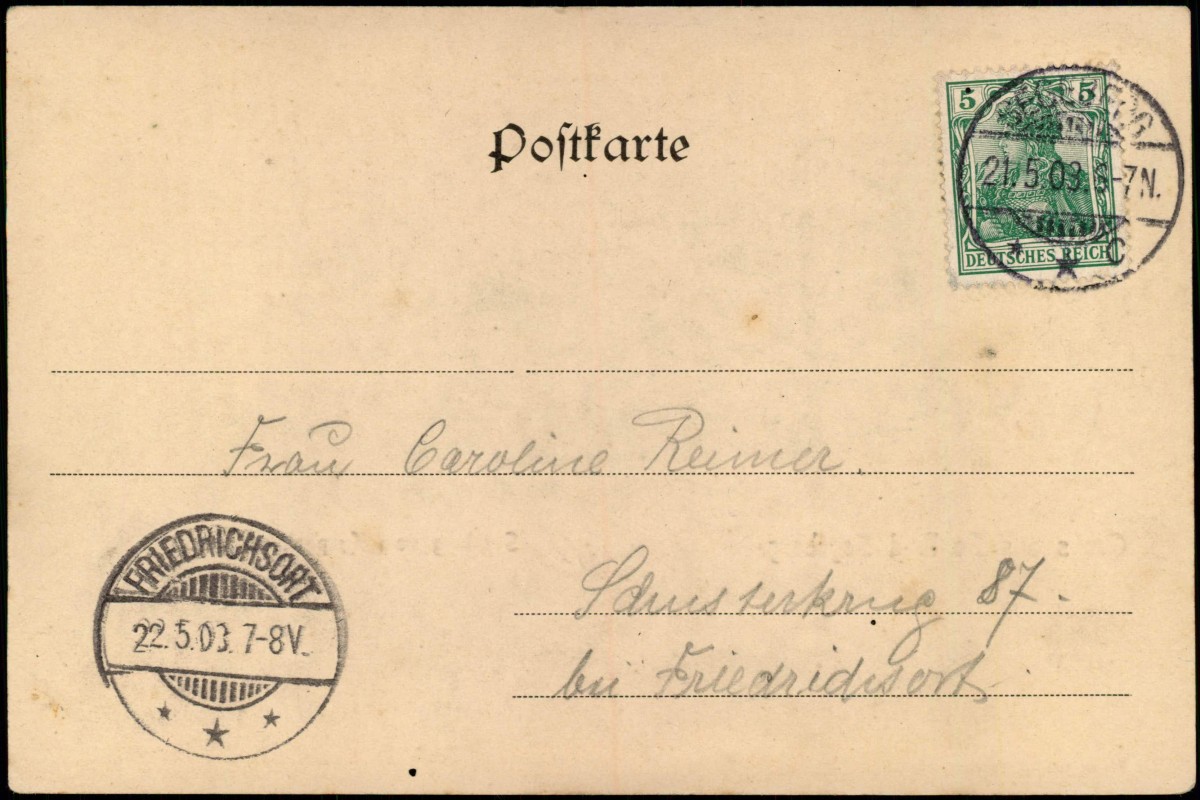 Postkarte
5 5
DEUTSCHES REICH
SEGEBERG
21.5.03. 6-7N.
C
Frau Caroline Reimer.
Schusterkrug 87.
bei Friedrichsort
FRIEDRICHSORT
22.5.03. 7-8V.